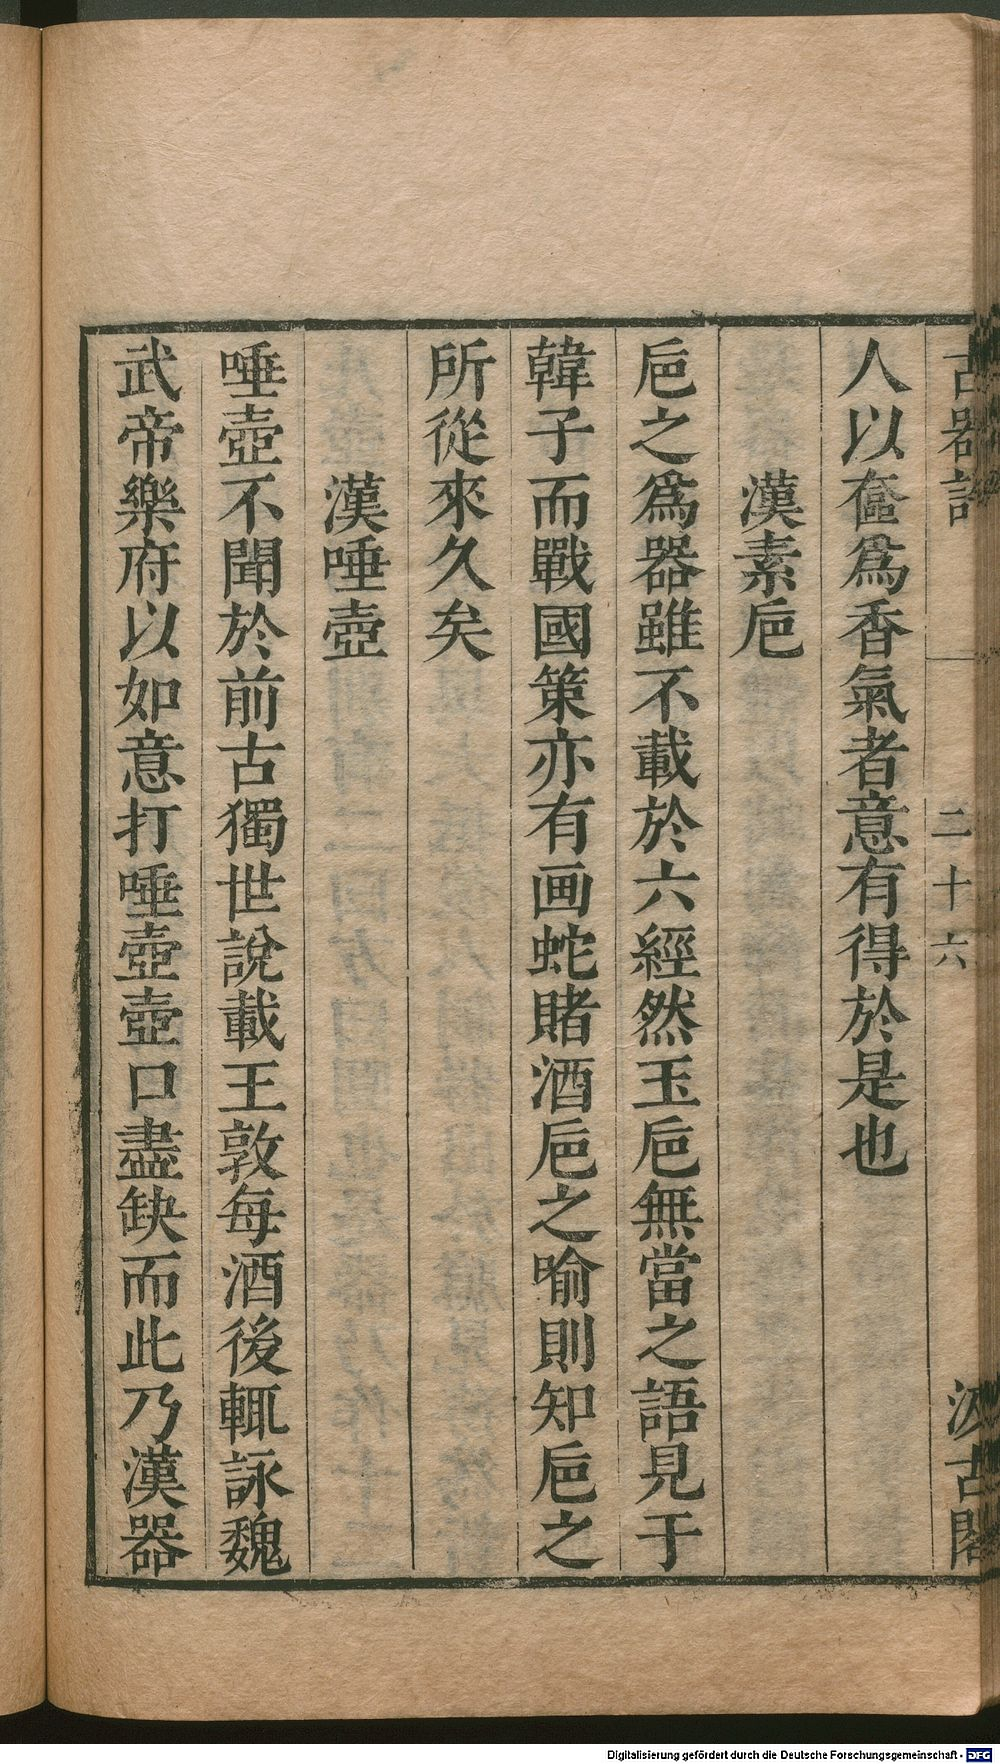 古器評
二十六
汲古閣
人以奩爲香氣者意有得於是也
漢素巵
巵之爲器雖不載於六經然玉巵無當之語見于
韓子而戰國策亦有画蛇賭酒巵之喻則知巵之
所從來久矣
漢唾壺
唾壺不聞於前古獨世說載王敦每酒後輒詠魏
武帝樂府以如意打唾壺壺口盡缺而此乃漢器
Digitalisierung gefördert durch die Deutsche Forschungsgemeinschaft - DFG